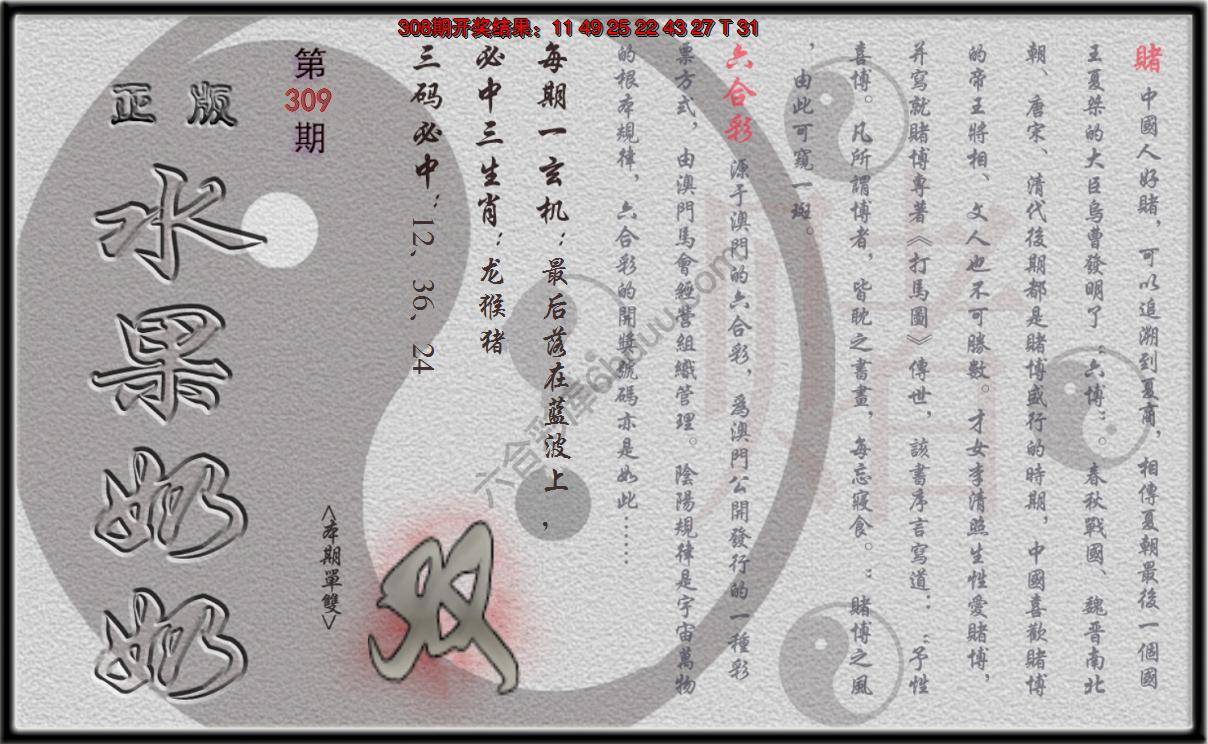 308期开奖结果：11 49 25 22 43 27 T 31
賭 中國人好賭，可以追溯到夏商，相傳夏朝最後一個國
王夏桀的大臣烏曹發明了“六博”。春秋戰國、魏晋南北
朝、唐宋、清代後期都是賭博盛行的時期，中國喜歡賭博
的帝王將相、文人也不可勝數。才女李清照生性愛賭博，
并寫就賭博專著《打馬圖》傳世，該書序言寫道：“予性
喜博。凡所謂博者，皆耽之書畫，每忘寢食。：賭博之風
，由此可窺一斑。
六合彩 源于澳門的六合彩，爲澳門公開發行的一種彩
票方式，由澳門馬會經營組織管理。陰陽規律是宇宙萬物
的根本規律，六合彩的開獎號碼亦是如此……
每期一玄机：最后落在蓝波上，
必中三生肖：龙猴猪
三码必中：12、36、24
第
309
期
<本期單雙>
双
正版
水果奶奶
六合彩库6hduu.com